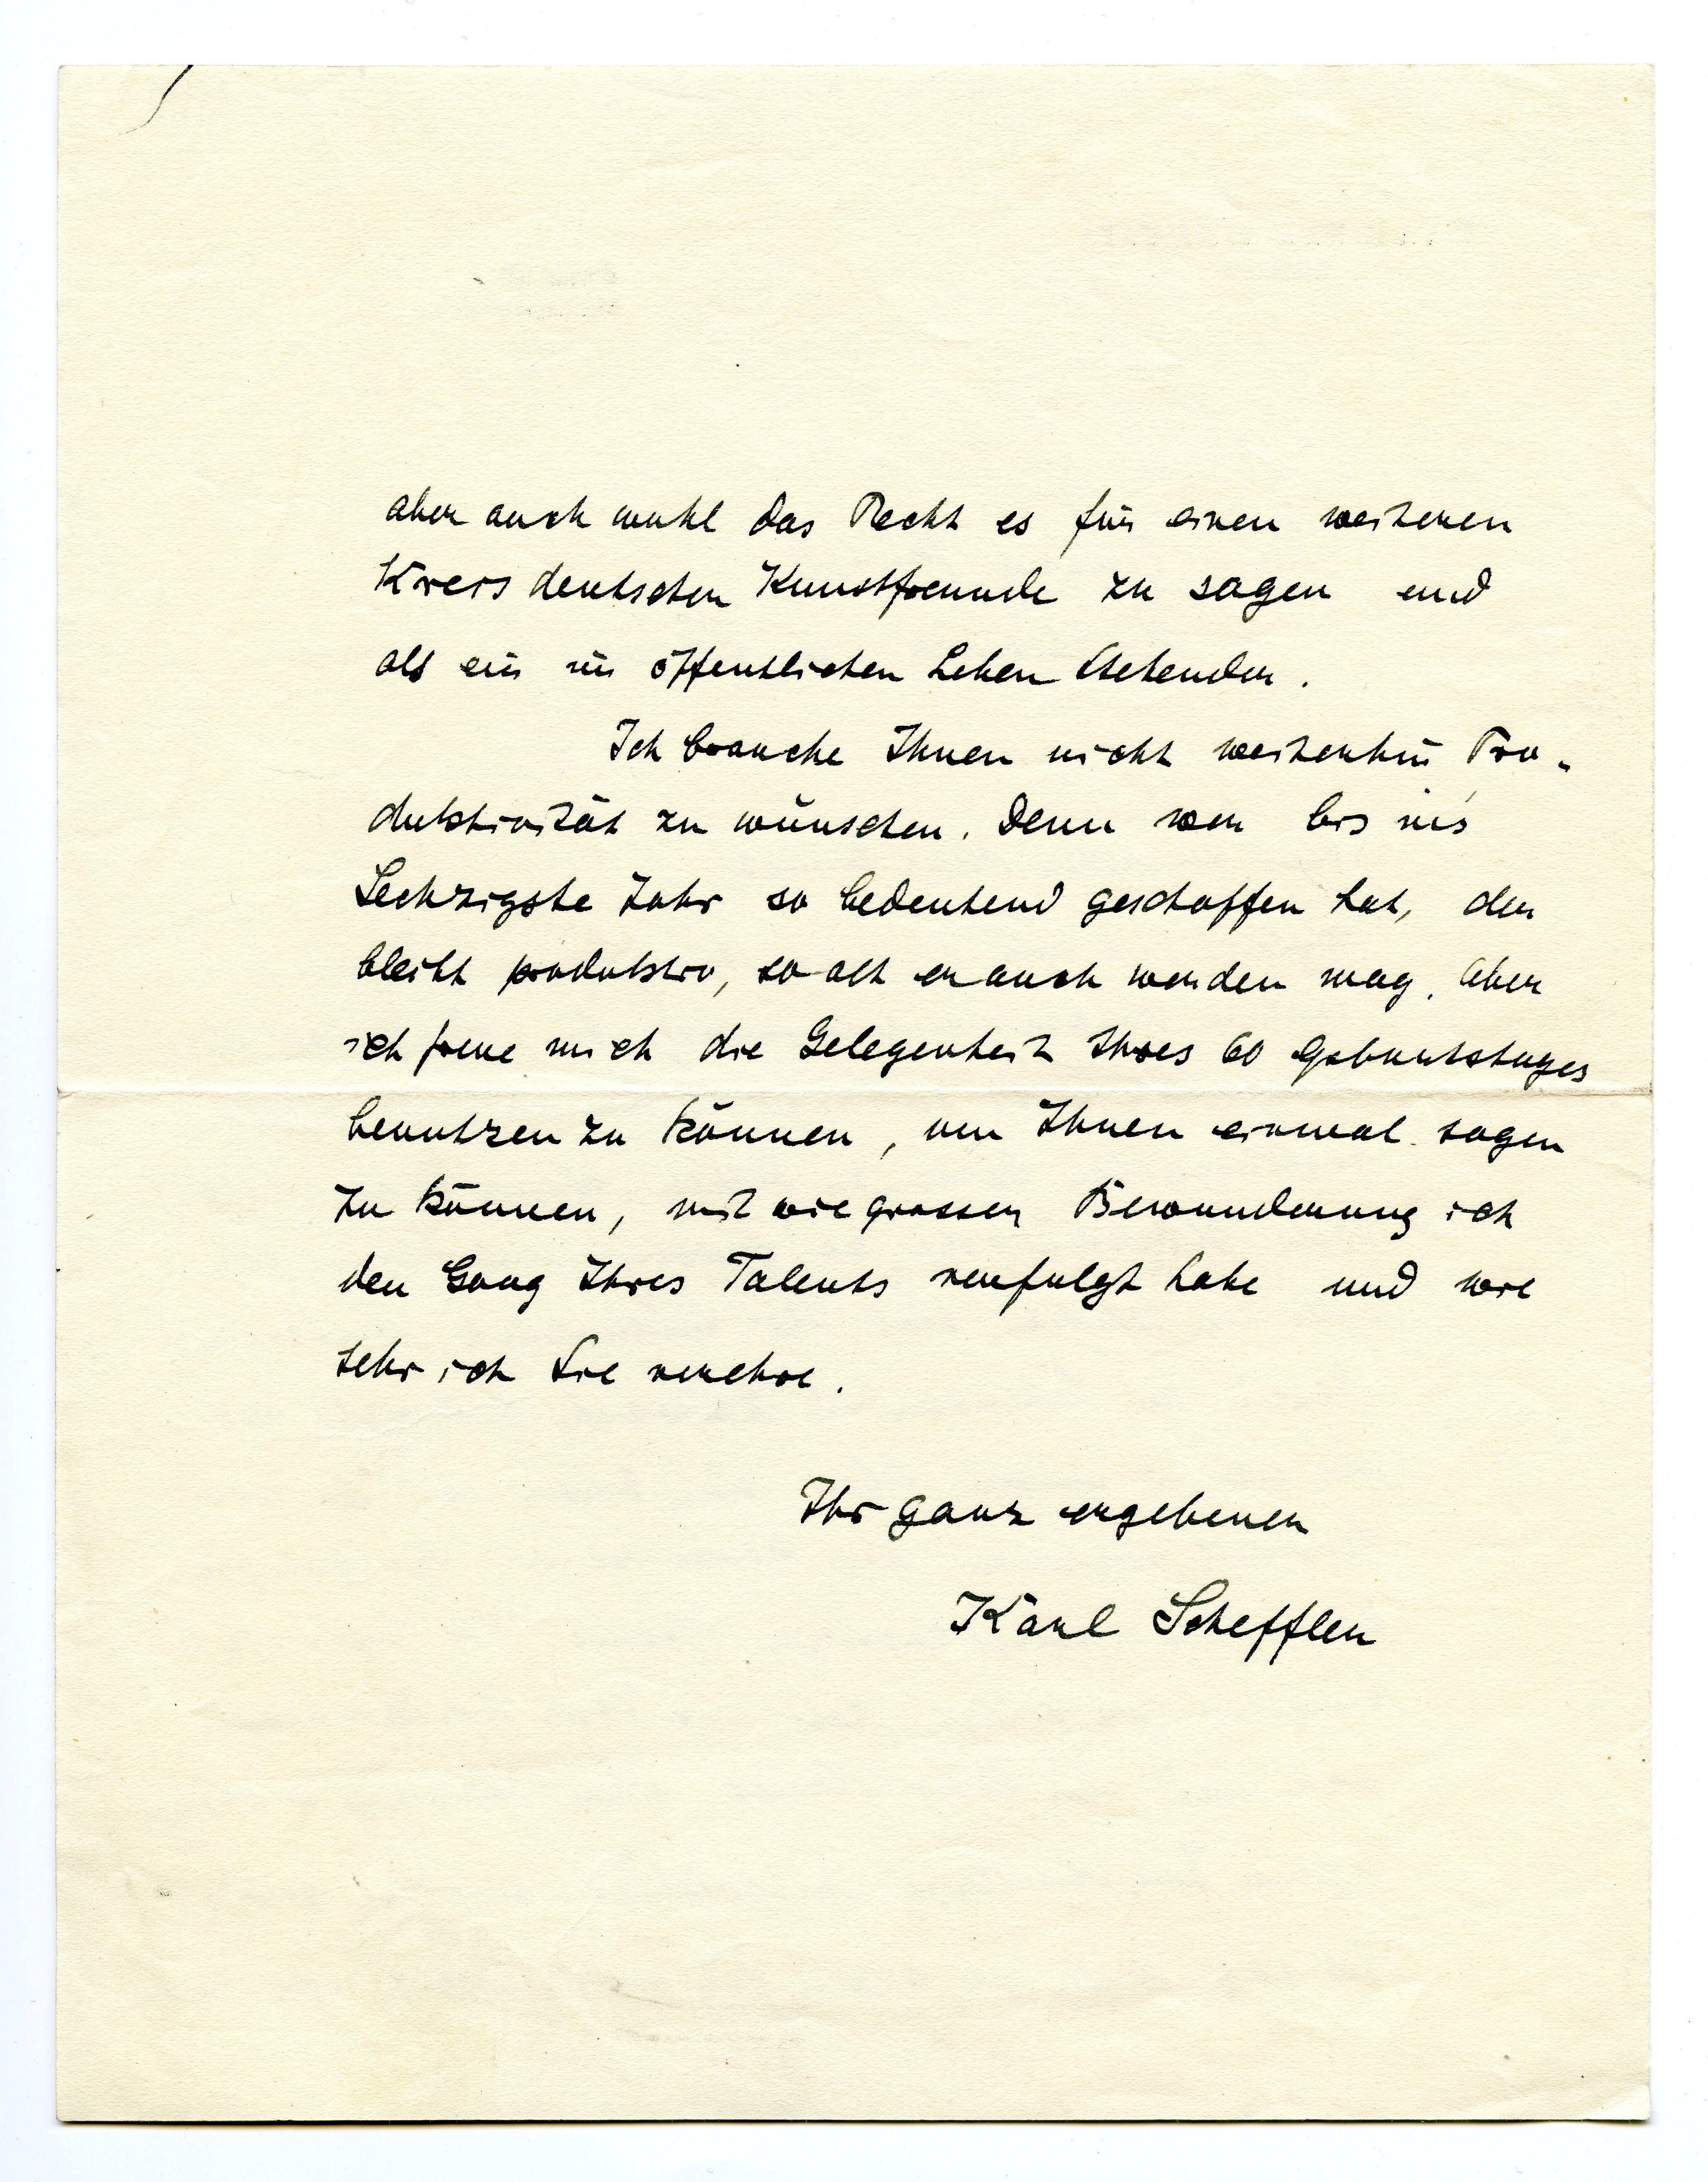 aber auch wohl das Recht es für einen weiteren
Kreis deutscher Kunstfreunde zu sagen und
als ein im öffentlichen Leben Stehender.
Ich brauche Ihnen nicht weiterhin Pro-
duktivität zu wünschen. Denn wer bis ins
Sechzigste Jahr so bedeutend geschaffen hat, der
bleibt produktiv, so alt er auch werden mag. Aber
ich freue mich die Gelegenheit Ihres 60 Geburtstages
benutzen zu können, um Ihnen einmal sagen
zu können, mit wie grosser Bewunderung ich
den Gang Ihres Talents verfolgt habe und wie
sehr ich Sie verehre.
Ihr ganz ergebener
Karl Scheffler